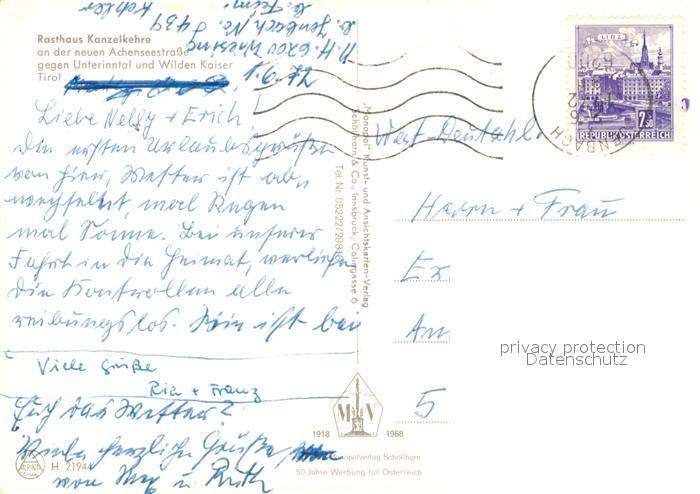 Rasthaus Kanzelkehre
an der neuen Achenseestraße
gegen Unterinntal und Wilden Kaiser
Tirol
Liebe Nelly + Erich!
Die ersten Urlaubsgrüße
von hier, Wetter ist ab,
wechselnd, mal Regen
mal Sonne. Bei unserer
Fahrt in die Heimat, verliefen
die Kontrollen alle
reibungslos. Wie ist bei
Viele Grüße
Ria + Franz
Euch das Wetter?
Viele herzliche Grüße,
von u Ruth
H 21944
ALPINA
„Monopol" Kunst- und Ansichtskarten-Verlag
Schöllhorn & Co., Innsbruck, Colingasse 6
Tel. Nr. 05222/29810
1918
M V
1968
Monopolverlag Schöllhorn
50 Jahre Werbung für Österreich
LINZ
2.50
REPUBLIK ÖSTERREICH
West-Deutschl.
Herrn + Frau
Er
Am
5
privacy protection
Datenschutz